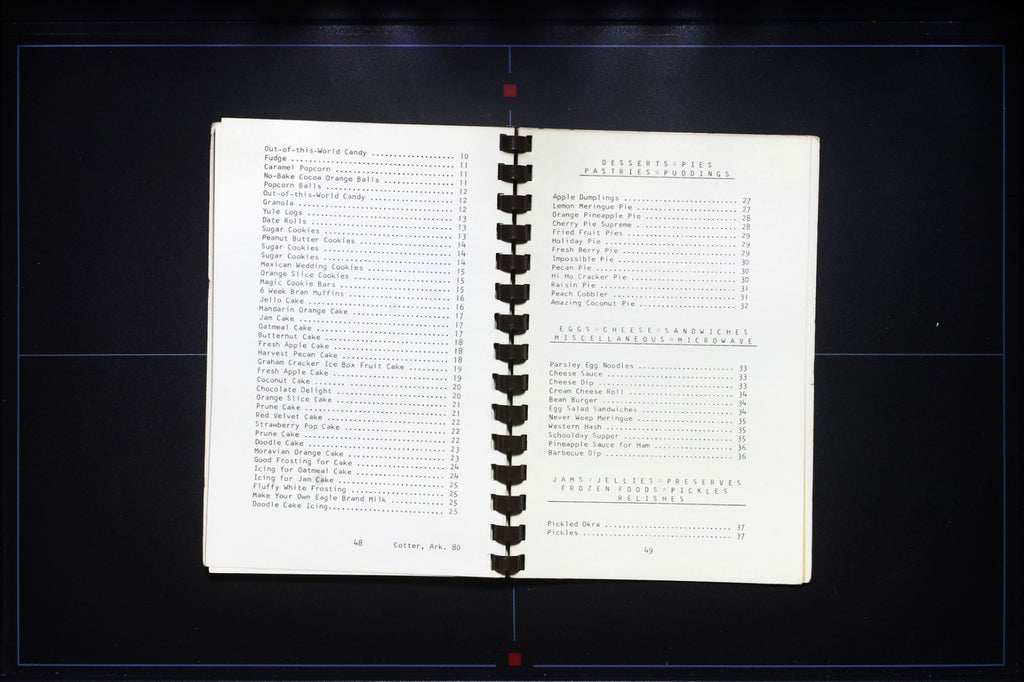 Out-of-this-World Candy .................... 10
Fudge .................... 11
Caramel Popcorn .................... 11
No-Bake Cocoa Orange Balls .................... 11
Popcorn Balls .................... 12
Out-of-this-World Candy .................... 12
Granola .................... 12
Yule Logs .................... 13
Date Rolls .................... 13
Sugar Cookies .................... 13
Peanut Butter Cookies .................... 14
Sugar Cookies .................... 14
Sugar Cookies .................... 14
Mexican Wedding Cookies .................... 15
Orange Slice Cookies .................... 15
Magic Cookie Bars .................... 15
6 Week Bran Muffins .................... 16
Jello Cake .................... 16
Mandarin Orange Cake .................... 17
Jam Cake .................... 17
Oatmeal Cake .................... 17
Butternut Cake .................... 18
Fresh Apple Cake .................... 18
Harvest Pecan Cake .................... 18
Graham Cracker Ice Box Fruit Cake .................... 19
Fresh Apple Cake .................... 19
Coconut Cake .................... 20
Chocolate Delight .................... 20
Orange Slice Cake .................... 21
Prune Cake .................... 21
Red Velvet Cake .................... 22
Strawberry Pop Cake .................... 22
Prune Cake .................... 22
Doodle Cake .................... 23
Moravian Orange Cake .................... 23
Good Frosting for Cake .................... 24
Icing for Oatmeal Cake .................... 24
Icing for Jam Cake .................... 25
Fluffy White Frosting .................... 25
Make Your Own Eagle Brand Milk .................... 25
Doodle Cake Icing .................... 25
48 Cotter, Ark. 80
DESSERTS☆PIES
PASTRIES☆PUDDINGS
Apple Dumplings .................... 27
Lemon Meringue Pie .................... 27
Orange Pineapple Pie .................... 28
Cherry Pie Supreme .................... 28
Fried Fruit Pies .................... 29
Holiday Pie .................... 29
Fresh Berry Pie .................... 29
Impossible Pie .................... 30
Pecan Pie .................... 30
Hi Ho Cracker Pie .................... 30
Raisin Pie .................... 31
Peach Cobbler .................... 31
Amazing Coconut Pie .................... 32
EGGS☆CHEESE☆SANDWICHES
MISCELLANEOUS☆MICROWAVE
Parsley Egg Noodles .................... 33
Cheese Sauce .................... 33
Cheese Dip .................... 33
Cream Cheese Roll .................... 34
Bean Burger .................... 34
Egg Salad Sandwiches .................... 34
Never Weep Meringue .................... 35
Western Hash .................... 35
Schoolday Supper .................... 35
Pineapple Sauce for Ham .................... 36
Barbecue Dip .................... 36
JAMS☆JELLIES☆PRESERVES
FROZEN FOODS☆PICKLES
RELISHES
Pickled Okra .................... 37
Pickles .................... 37
49